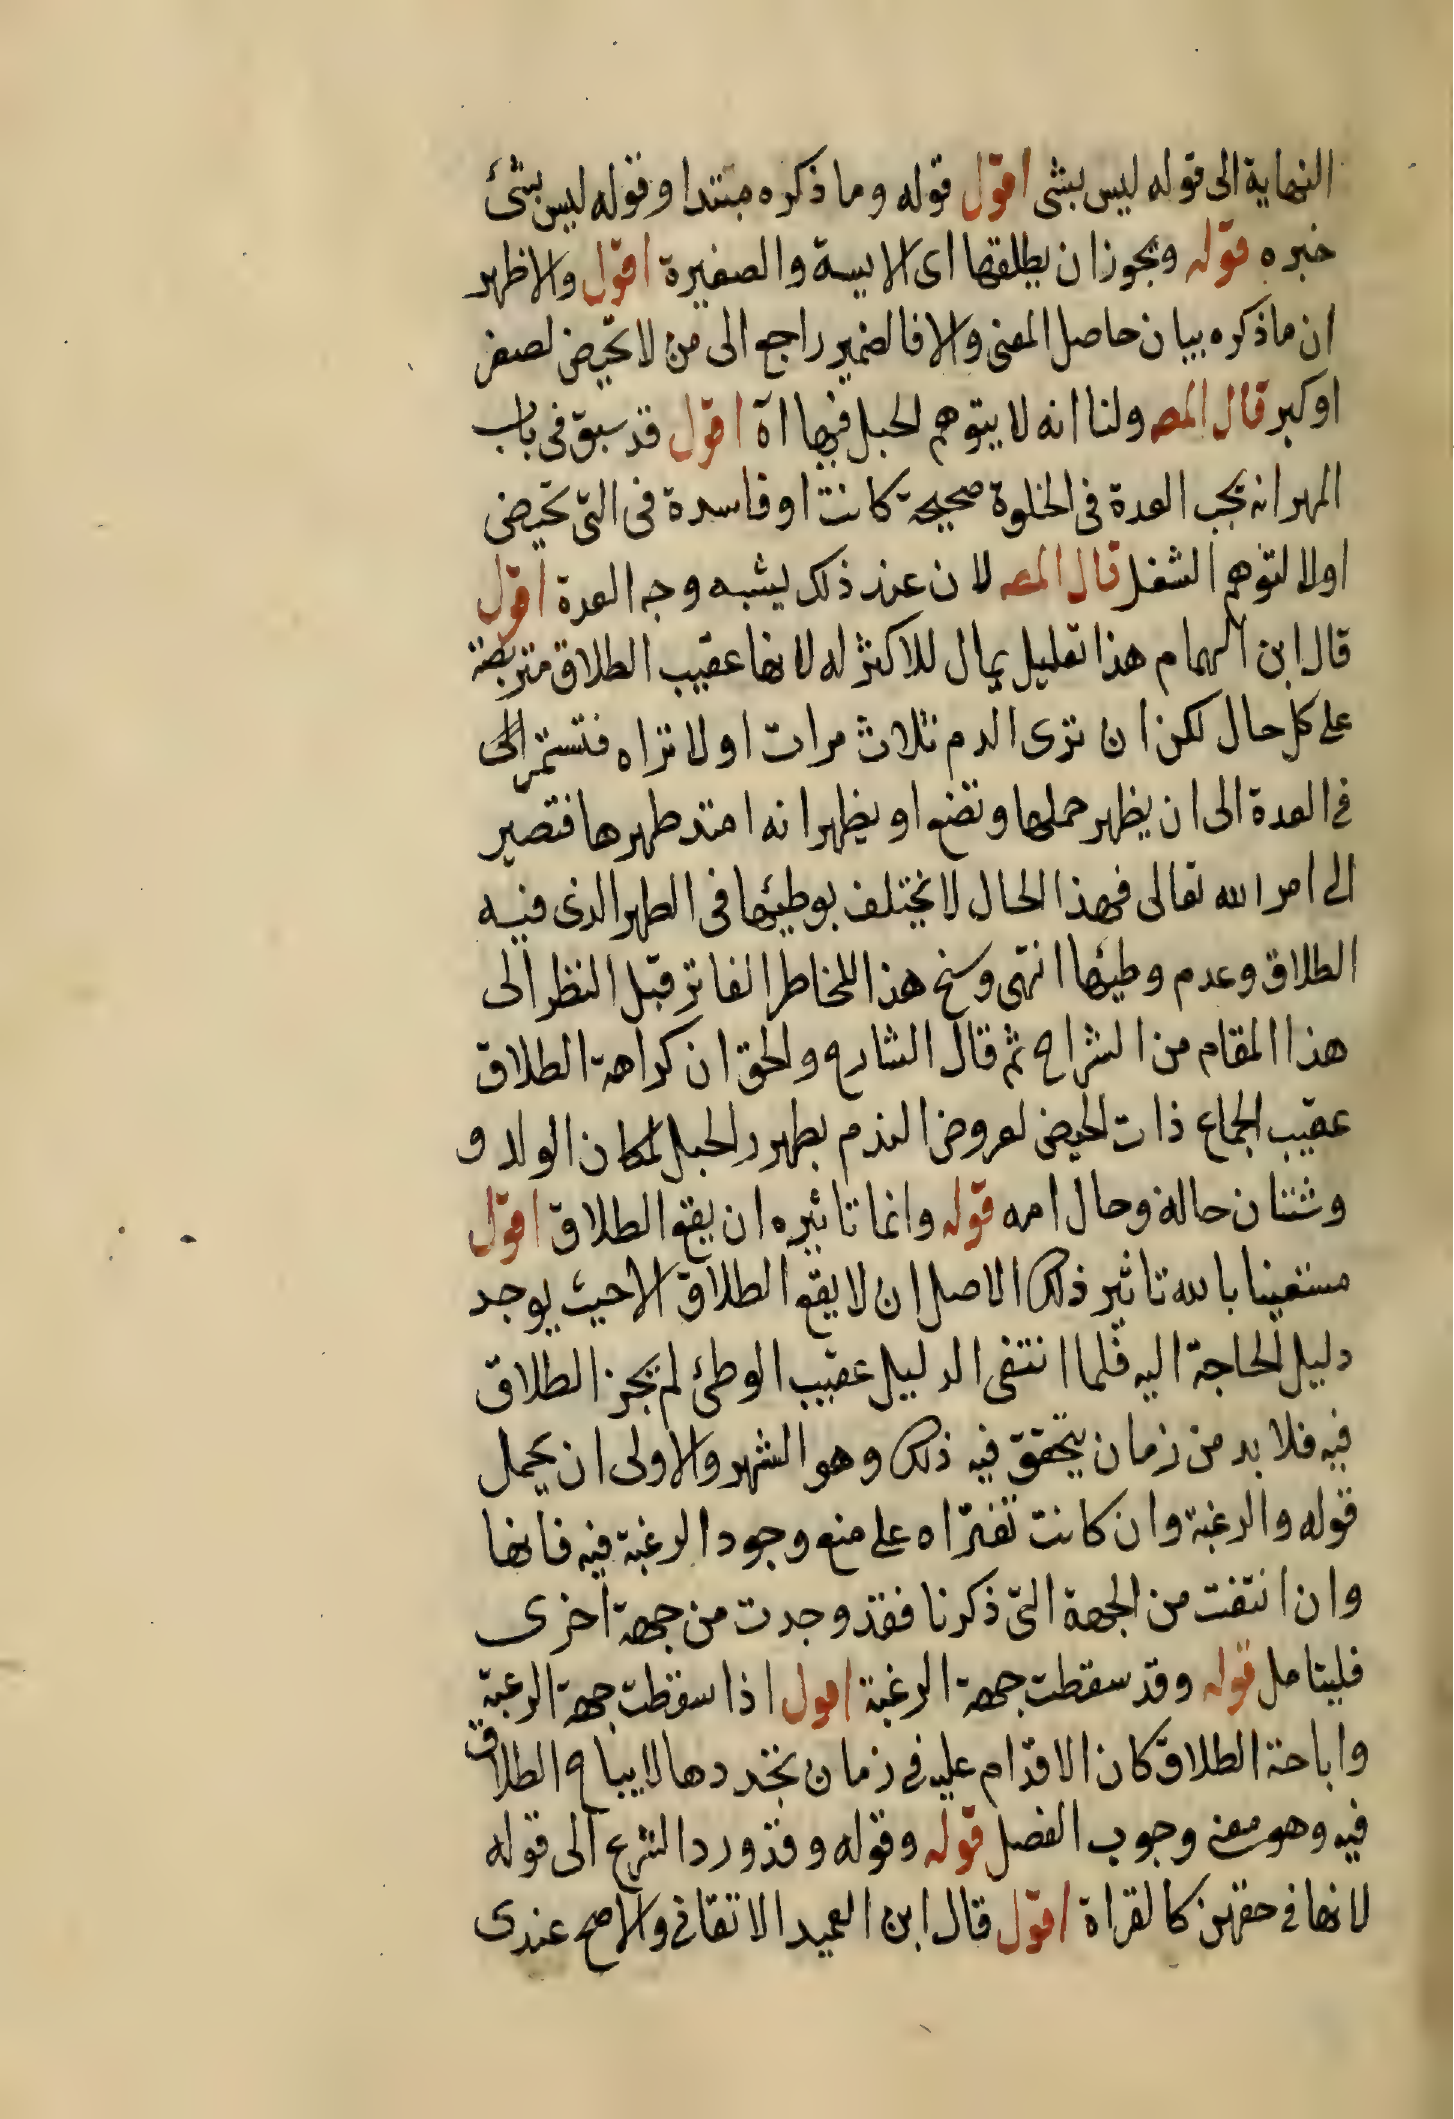 النهاية الى قوله ليس بشئ اقول قوله وما ذكره مبتدا وقوله ليس بشئ
خبره قوله ويجوز ان يطلقها اى الايسة والصغيرة اقول والاظهر
ان ماذكره بيان حاصل المعنى والا فالضمير راجع الى من لا تحيض لصغر
او كبر قال المصـ ولنا انه لا يتوهم الحبل فيها اه اقول قد سبق فى باب
المهر انه يجب العدة فى الخلوة صحيحة كانت او فاسدة فى التى تحيض
اولا لتوهم الشغل قال المصـ لان عند ذلك يشبه وجه العدة اقول
قال ابن الهمام هذا تعليل يمال للاكثر له لانها عقيب الطلاق متربصة
على كل حال لكن ان ترى الدم ثلاث مرات او لا تراه فتستمر الى
فى العدة الى ان يظهر حملها وتضع او يظهر انه امتد طهرها فتصير
الى امر الله تعالى فهذا الحال لا يختلف بوطيئها فى الطهر الذى فيه
الطلاق وعدم وطيئها انتهى وسنح هذا للخاطر الفاتر قبل النظر الى
هذا المقام من الشراح ثم قال الشارح والحق ان كراهة الطلاق
عقيب الجماع ذات الحيض لعروض الندم بظهور الحبل لمكان الولد و
وشتان حاله وحال امه قوله وانما تاثيره ان يقع الطلاق اقول
مستعينا بالله تاثير ذلك الاصل ان لا يقع الطلاق الا حيث يوجد
دليل الحاجة اليه فلما انتفى الدليل عقيب الوطئ لم يجز الطلاق
فيه فلا بد من زمان يتحقق فيه ذلك وهو الشهر والاولى ان يحمل
قوله والرغبة وان كانت تفتراه على منع وجود الرغبة فيه فانها
وان انتفت من الجهة التى ذكرنا فقد وجدت من جهة اخرى
فليتامل قوله وقد سقطت جهة الرغبة اقول اذا سقطت جهة الرغبة
واباحة الطلاق كان الاقدام عليه فى زمان تجددها لا يباح الطلاق
فيه وهو معنى وجوب الفصل قوله وقوله وقد ورد الشرع الى قوله
لانها فى حقهن كالقراة اقول قال ابن العميد الاتقانى والاصح عندى